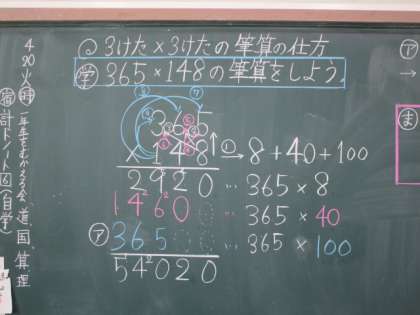 3けた×3けたの筆算の仕方
学 365×148の筆算をしよう。
365
×148 ① → 8+40+100
2920 … 365×8
1460 … 365×40
ア 365 … 365×100
54020
ア
→
ま
4/20 火
一年生をむかえる会 道 国 算 理
宿 計ド ノート 6 (自学)